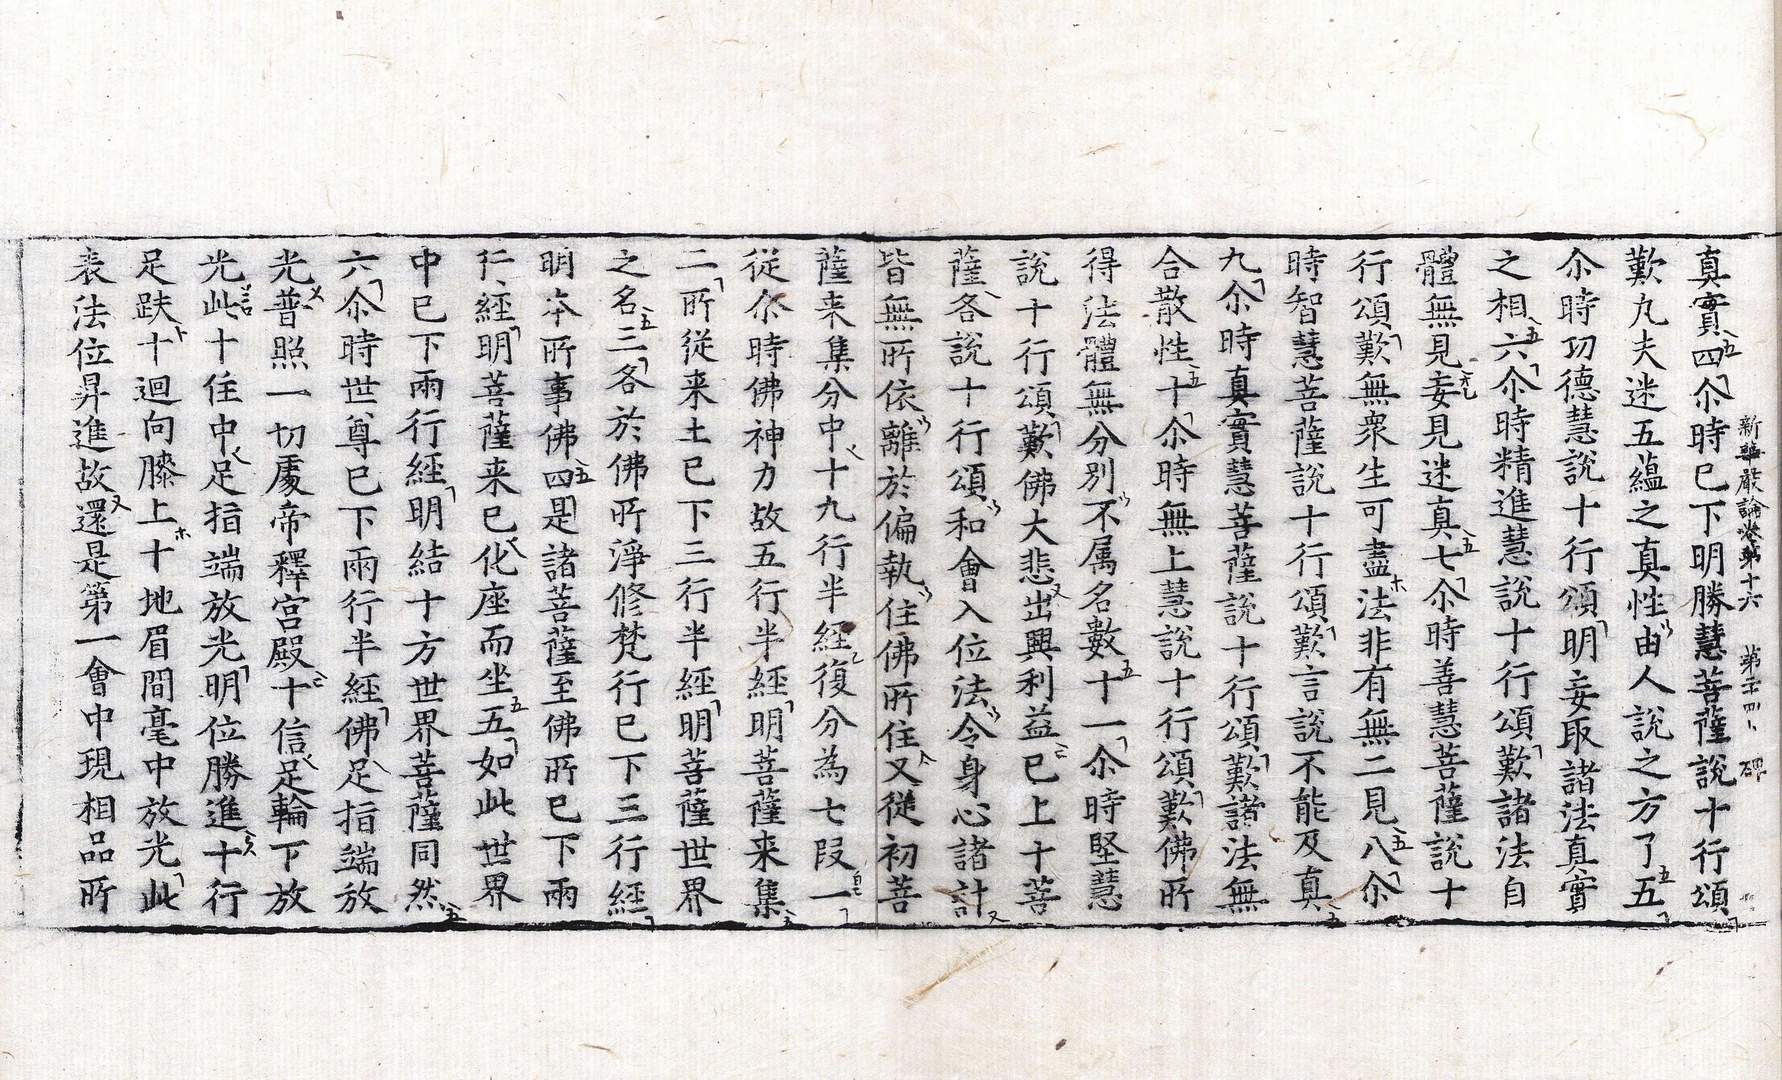 新華嚴論卷第十六 第二十四 碑
真實四尒時已下明勝慧菩薩說十行頌
歎凡夫迷五蘊之真性由人說之方了五
尒時功德慧說十行頌明妄取諸法真實
之相六尒時精進慧說十行頌歎諸法自
體無見妄見迷真七尒時善慧菩薩說十
行頌歎無衆生可盡法非有無二見八尒
時智慧菩薩說十行頌歎言說不能及真
九尒時真實慧菩薩說十行頌歎諸法無
合散性十尒時無上慧說十行頌歎佛所
得法體無分別不属名數十一尒時堅慧
說十行頌歎佛大悲出興利益已上十菩
薩各說十行頌和會入位法令身心諸計
皆無所依離於偏執住佛所住又從初菩
薩来集分中十九行半經復分為七段一
從尒時佛神力故五行半經明菩薩来集
二所從来土已下三行半經明菩薩世界
之名三各於佛所淨修梵行已下三行經
明本所事佛四是諸菩薩至佛所已下兩
行經明菩薩来已化座而坐五如此世界
中已下兩行經明結十方世界菩薩同然
六尒時世尊已下兩行半經佛足指端放
光普照一切處帝釋宮殿十信足輪下放
光此十住中足指端放光明位勝進十行
足趺十迴向膝上十地眉間毫中放光此
表法位昇進故還是第一會中現相品所